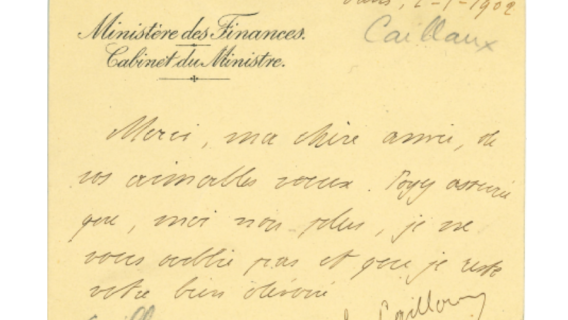 Paris, 2-1-1902
Ministère des Finances.
Caillaux
Cabinet du Ministre.
Merci, ma chère amie, de
vos aimables vœux. Soyez assurée
que, moi non plus, je ne
vous oublie pas et que je reste
votre bien dévoué
J. Caillaux